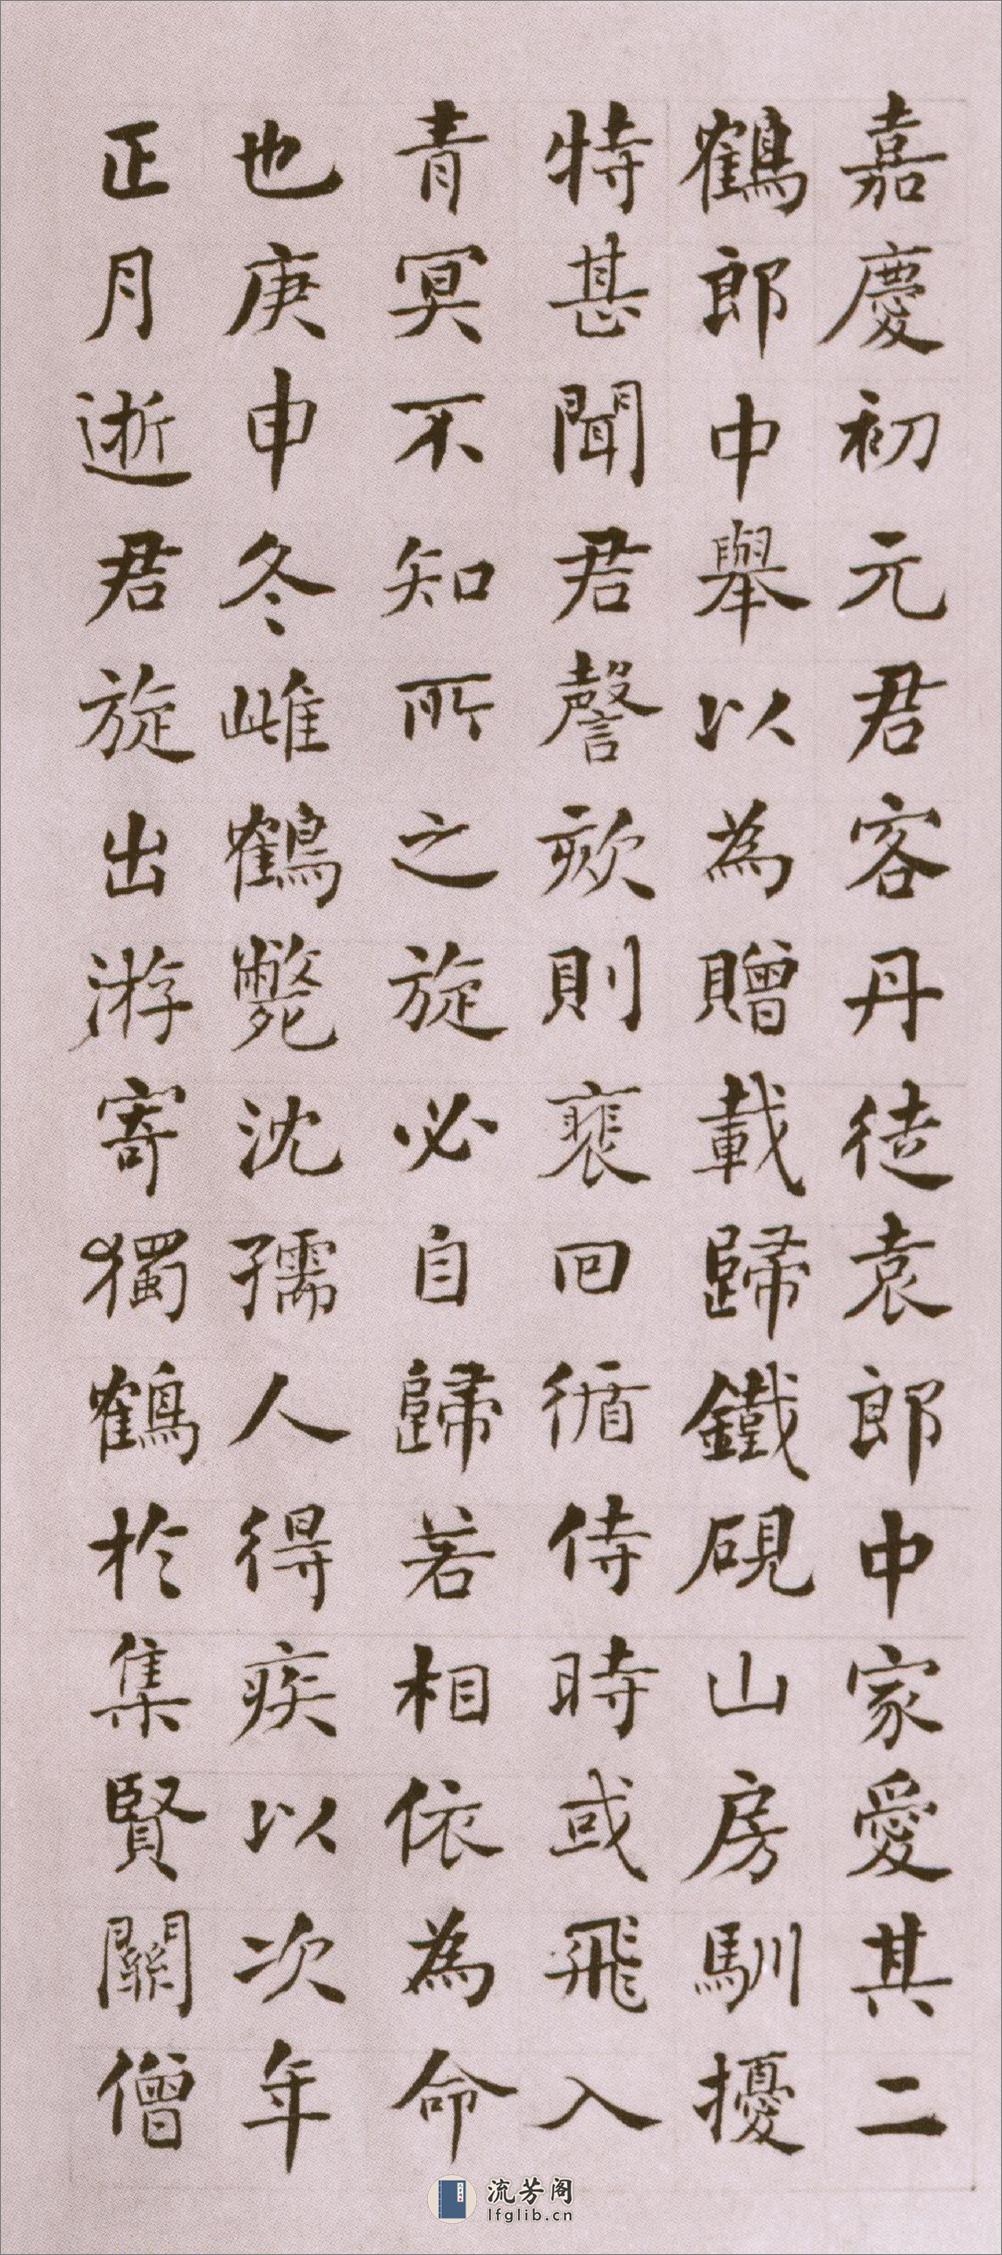 嘉慶初元君客丹徒袁郎中家愛其二
鶴郎中舉以為贈載歸鐵硯山房馴擾
特甚聞君謦欬則裴回循侍時或飛入
青冥不知所之旋必自歸若相依為命
也庚申冬雌鶴斃沈孺人得疾以次年
正月逝君旋出游寄獨鶴於集賢關僧
流芳阁
lfglib.cn